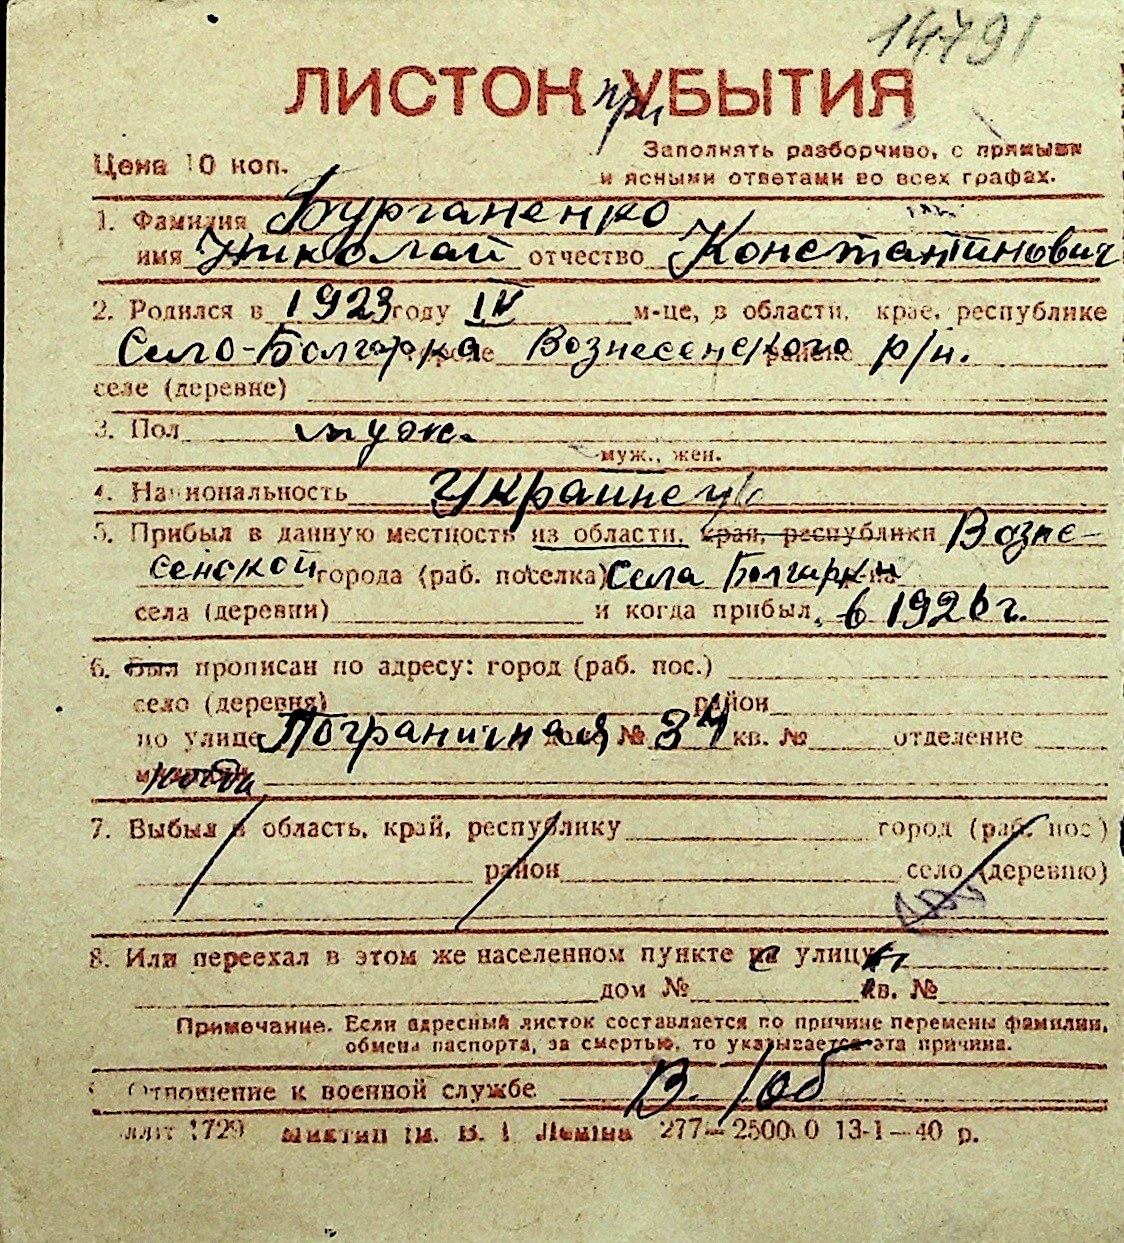 14791
ЛИСТОК при УБЫТИЯ
Заполнять разборчиво, с прямыми
Цена 10 коп. и ясными ответами во всех графах.
1. Фамилия Бурганенко
имя Николай отчество Константинович
2. Родился в 1923 году IV м-це, в области, крае, республике
Село-Болгарка Вознесенского р/н.
селе (деревне)
3. Пол муж.
муж., жен.
4. Национальность Украинец
5. Прибыл в данную местность из области, края, республики Возне-
сенской города (раб. поселка) Села Болгарки
села (деревни) и когда прибыл, в 1926 г.
6. Был прописан по адресу: город (раб. пос.)
село (деревня) район
по улице Пограничная дом № 34 кв. № отделение
когда
7. Выбыл в область, край, республику город (раб. пос)
район село (деревню)
8. Или переехал в этом же населенном пункте на улицу
дом № кв. №
Примечание. Если адресный листок составляется по причине перемены фамилии,
обмена паспорта, за смертью, то указывается эта причина.
Отношение к военной службе В./об
1729 им. В. І Леніна 277—25000 13-1—40 р.